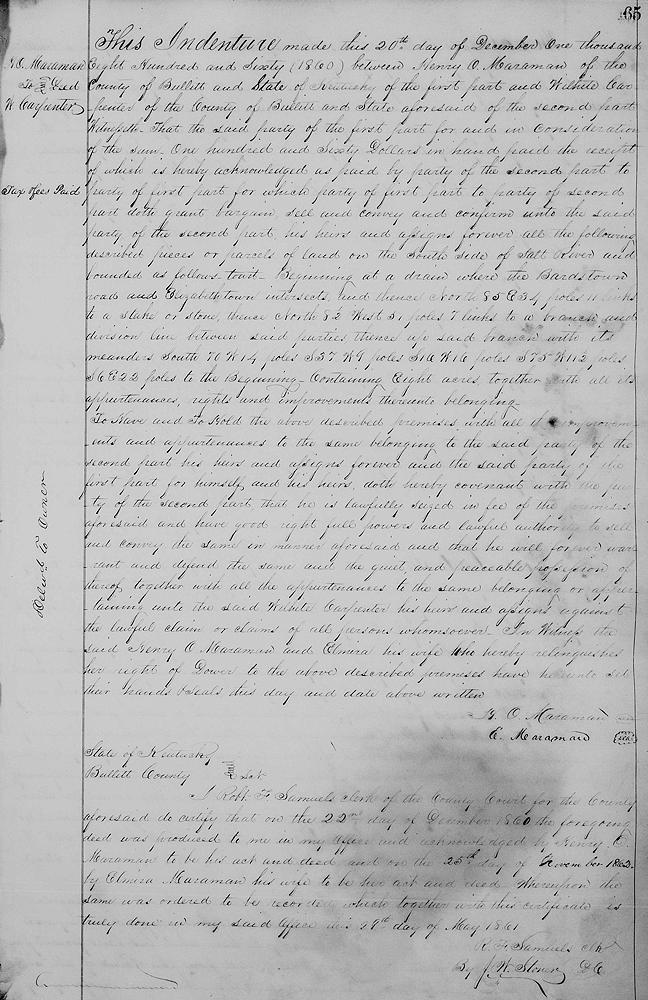 65
This Indenture made this 20th day of December One thousand
H. O. Maraman
To } Deed
W Carpenter
Eight Hundred and Sixty (1860) between Henry O. Maraman of the
County of Bullitt and State of Kentucky of the first part and Wilhite Car
penter of the County of Bullitt and State aforesaid of the second part
Witnesseth. That the said party of the first part for and in Consideration
of the sum. One hundred and Sixty Dollars in hand paid the receipt
of which is hereby acknowledged as paid by party of the second part to
Tax & fees Paid
party of first part for which party of first part to party of second
part doth grant bargain, sell and convey and confirm unto the said
party of the second part, his heirs and assigns forever all the following
described pieces or parcels of land on the South side of Salt River and
bounded as follows towit. Beginning at a drain where the Bardstown
road and Elizabethtown intersects, and thence North 85 E 34 poles 11 links
to a stake or stone, thence North 82 West 31 poles 7 links to a branch and
division line between said parties thence up said branch with its
meanders South 70 W 14 poles S 37 W 9 poles S 16 W 16 poles S 75 W 112 poles
S 6 E 22 poles to the Beginning - Containing Eight acres, together with all its
appurtenances, rights and improvements thereunto belonging
To Have and To Hold the above described premises, with all the improvem-
ents and appurtenances to the same belonging to the said party of the
second part his heirs and assigns forever and the said party of the
first part for himself and his heirs, doth hereby covenant with the par
-ty of the second part that he is lawfully seized in fee of the premises
aforesaid and have good right full powers and lawful authority to sell
and convey the same in manner aforesaid and that he will forever war
-rant and defend the same and the quiet and peaceable possession of
thereof together with all the appurtenances to the same belonging or apper
-taining unto the said Wilhite Carpenter his heirs and assigns against
the lawful claim or claims of all persons whomsoever. In Witness the
said Henry O Maraman and Elmira his wife who hereby relinquishes
her right of Dower to the above described premeses have hereunto set
their hands & seals this day and date above written
Deliv'd to Owner
H. O. Maraman
E. Maraman seal
State of Kentucky
Bullitt County } Sct
I Robt. F. Samuels clerk of the County Court for the County
aforesaid do certify that on the 22nd day of December 1860 the foregoing
deed was produced to me in my office and acknowledged by Henry O.
Maraman to be his act and deed and on the 25th day of November 1862
by Elmira Maraman his wife to be her act and deed Whereupon the
same was ordered to be recorded which together with this certificate is
truly done in my said Office this 29th day of May 1861
R. F. Samuels clk
By J. W. Stover D C